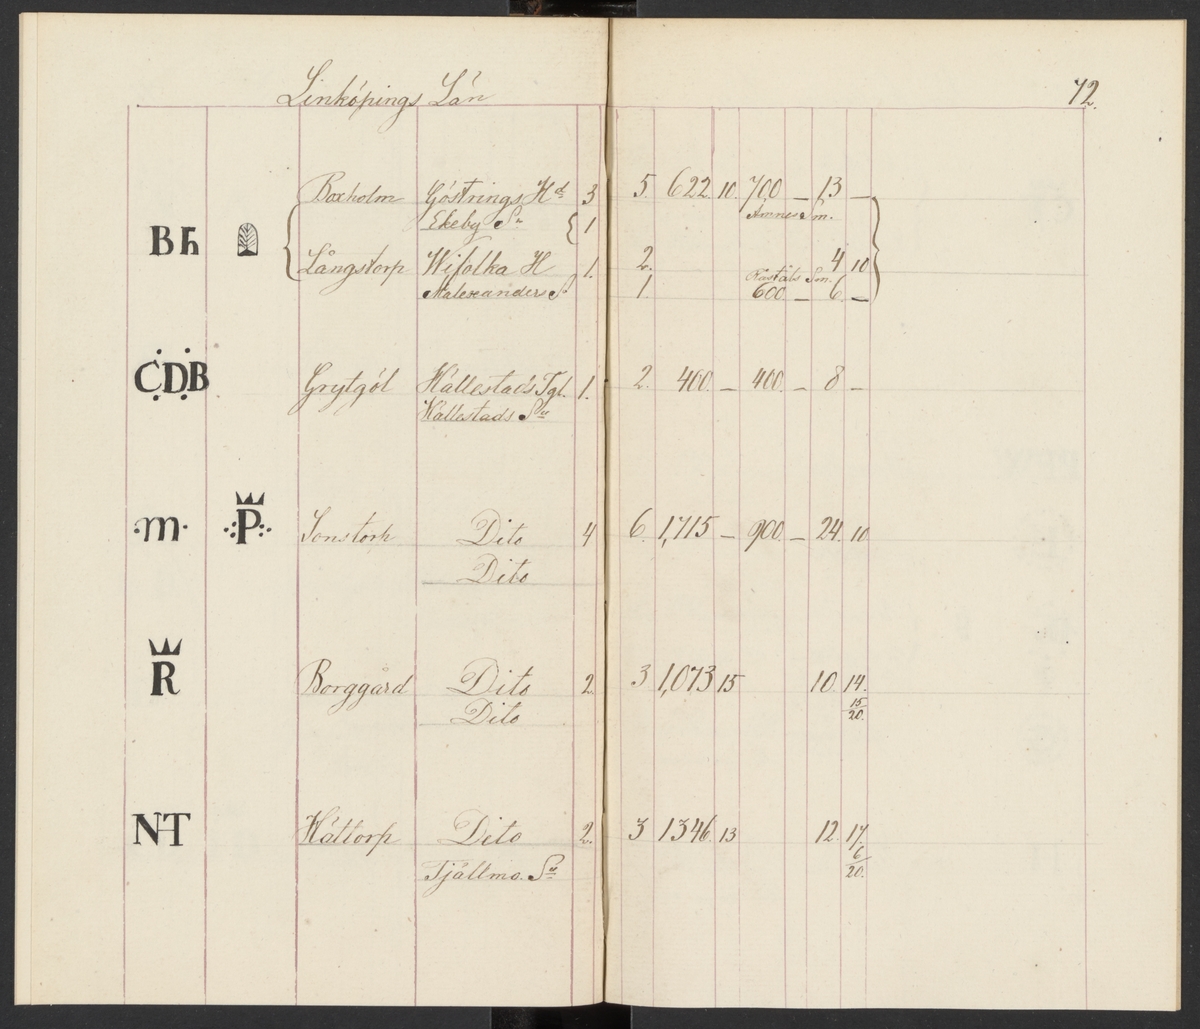 Linköpings Län 72.
Boxholm Göstrings Hd 3 5. 622. 10. 700 – 13 –
Ekeby Sn { 1 Ämnes Sm.
Bh
Långstorp Wifolka H 1. 2. 4 10
Malexanders S 1. 600 – 6. –
CDB Grytgöl Hällestads Tgl. 1. 2. 400. – 400. – 8 –
Hällestads Sn
·m· P Sonstorp Dito 4 6. 1,715 – 900. – 24. 10
Dito
R Borggård Dito 2. 3 1,073 15 10. 14.
Dito 15/20.
NT Hättorp Dito 2. 3 1346. 13 12. 17.
Tjällmo. Sn 6/20.